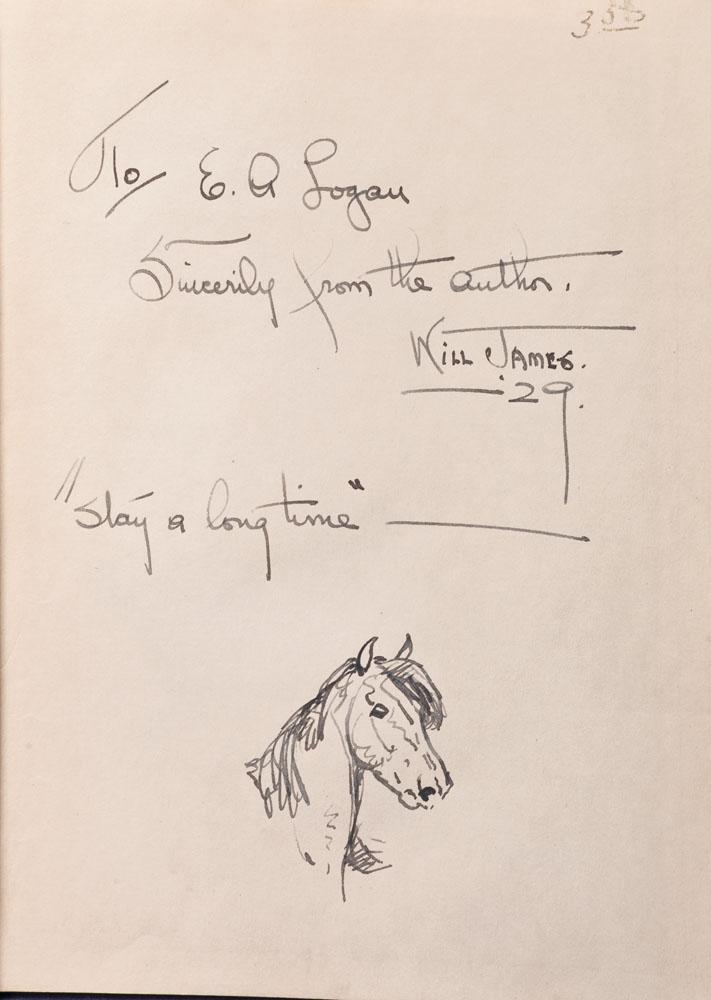 3 50
To E. A Logan
Sincerily from the author.
Will James.
'29.
"Stay a long time"